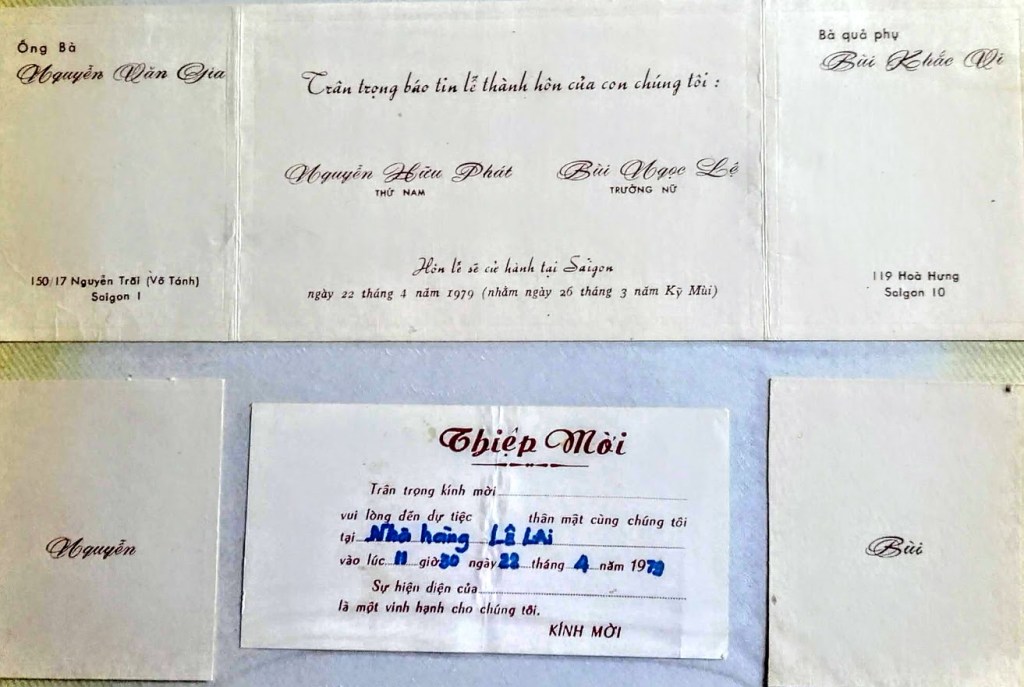 Ông Bà
Nguyễn Văn Gia
150/17 Nguyễn Trãi (Võ Tánh)
Saigon 1
Trân trọng báo tin lễ thành hôn của con chúng tôi :
Nguyễn Hữu Phát
THỨ NAM
Bùi Ngọc Lệ
TRƯỞNG NỮ
Hôn lễ sẽ cử hành tại Saigon
ngày 22 tháng 4 năm 1979 (nhằm ngày 26 tháng 3 năm Kỷ Mùi)
Bà quả phụ
Bùi Khắc Vi
119 Hoà Hưng
Saigon 10
Nguyễn
Thiệp Mời
Trân trọng kính mời
vui lòng đến dự tiệc thân mật cùng chúng tôi
tại Nhà hàng LÊ LAI
vào lúc 11 giờ 30 ngày 22 tháng 4 năm 1979
Sự hiện diện của
là một vinh hạnh cho chúng tôi.
KÍNH MỜI
Bùi